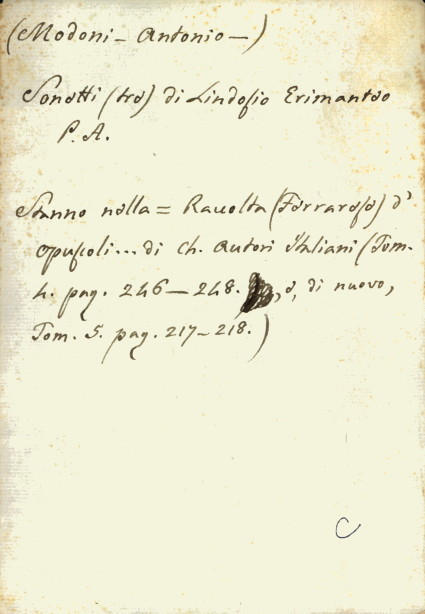 (Modoni - Antonio -)
Sonetti (tre) di Lindosio Erimanteo
P. A.
Stanno nella = Raccolta (Ferrarese) d'
opuscoli... di ch. autori Italiani (Tom.
4. pag. 246 - 248. , e, di nuovo,
Tom. 5. pag. 217 - 218.)
C